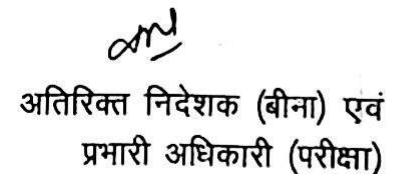 अतिरिक्त निदेशक (बीना) एवं
प्रभारी अधिकारी (परीक्षा)